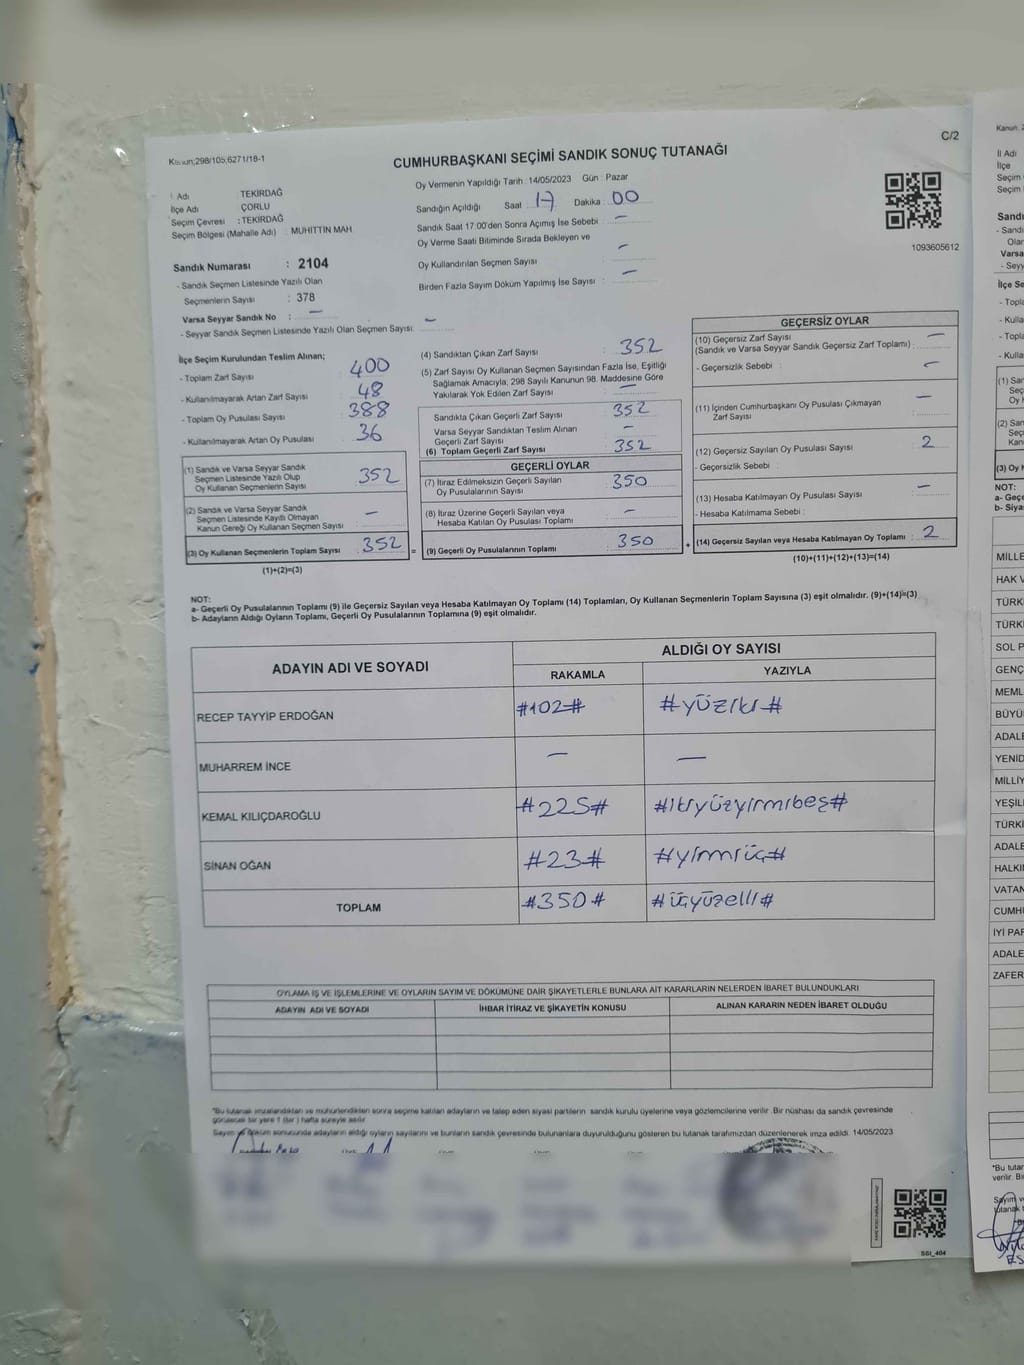 C/2
Kanun;298/105;6271/18-1
CUMHURBAŞKANI SEÇİMİ SANDIK SONUÇ TUTANAĞI
Adı TEKİRDAĞ
İlçe Adı ÇORLU
Seçim Çevresi : TEKİRDAĞ
Seçim Bölgesi (Mahalle Adı) : MUHİTTİN MAH
Sandık Numarası : 2104
- Sandık Seçmen Listesinde Yazılı Olan
Seçmenlerin Sayısı : 378
Varsa Seyyar Sandık No : —
- Seyyar Sandık Seçmen Listesinde Yazılı Olan Seçmen Sayısı: —
Oy Vermenin Yapıldığı Tarih : 14/05/2023 Gün : Pazar
Sandığın Açıldığı Saat : 17 Dakika : 00
Sandık Saat 17:00'den Sonra Açımış İse Sebebi : —
Oy Verme Saati Bitiminde Sırada Bekleyen ve
Oy Kullandırılan Seçmen Sayısı : —
Birden Fazla Sayım Döküm Yapılmış İse Sayısı : —
1093605612
İlçe Seçim Kurulundan Teslim Alınan;
- Toplam Zarf Sayısı : 400
- Kullanılmayarak Artan Zarf Sayısı : 48
- Toplam Oy Pusulası Sayısı : 388
- Kullanılmayarak Artan Oy Pusulası : 36
(1) Sandık ve Varsa Seyyar Sandık
Seçmen Listesinde Yazılı Olup
Oy Kullanan Seçmenlerin Sayısı : 352
(2) Sandık ve Varsa Seyyar Sandık
Seçmen Listesinde Kayıtlı Olmayan
Kanun Gereği Oy Kullanan Seçmen Sayısı : —
(3) Oy Kullanan Seçmenlerin Toplam Sayısı : 352 =
(1)+(2)=(3)
(4) Sandıktan Çıkan Zarf Sayısı : 352
(5) Zarf Sayısı Oy Kullanan Seçmen Sayısından Fazla İse, Eşitliği
Sağlamak Amacıyla; 298 Sayılı Kanunun 98. Maddesine Göre
Yakılarak Yok Edilen Zarf Sayısı : —
Sandıkta Çıkan Geçerli Zarf Sayısı : 352
Varsa Seyyar Sandıktan Teslim Alınan
Geçerli Zarf Sayısı : —
(6) Toplam Geçerli Zarf Sayısı : 352
GEÇERLİ OYLAR
(7) İtiraz Edilmeksizin Geçerli Sayılan
Oy Pusulalarının Sayısı : 350
(8) İtiraz Üzerine Geçerli Sayılan veya
Hesaba Katılan Oy Pusulası Toplamı : —
(9) Geçerli Oy Pusulalarının Toplamı : 350 +
GEÇERSİZ OYLAR
(10) Geçersiz Zarf Sayısı
(Sandık ve Varsa Seyyar Sandık Geçersiz Zarf Toplamı) : —
- Geçersizlik Sebebi : —
(11) İçinden Cumhurbaşkanı Oy Pusulası Çıkmayan
Zarf Sayısı : —
(12) Geçersiz Sayılan Oy Pusulası Sayısı : 2
- Geçersizlik Sebebi :
(13) Hesaba Katılmayan Oy Pusulası Sayısı : —
- Hesaba Katılmama Sebebi :
(14) Geçersiz Sayılan veya Hesaba Katılmayan Oy Toplamı : 2
(10)+(11)+(12)+(13)=(14)
NOT:
a- Geçerli Oy Pusulalarının Toplamı (9) ile Geçersiz Sayılan veya Hesaba Katılmayan Oy Toplamı (14) Toplamları, Oy Kullanan Seçmenlerin Toplam Sayısına (3) eşit olmalıdır. (9)+(14)=(3)
b- Adayların Aldığı Oyların Toplamı, Geçerli Oy Pusulalarının Toplamına (9) eşit olmalıdır.
ADAYIN ADI VE SOYADI ALDIĞI OY SAYISI
RAKAMLA YAZIYLA
RECEP TAYYİP ERDOĞAN #102# #yüziki#
MUHARREM İNCE — —
KEMAL KILIÇDAROĞLU #225# #ikiyüzyirmibeş#
SİNAN OĞAN #23# #yirmiüç#
TOPLAM #350# #üçyüzelli#
OYLAMA İŞ VE İŞLEMLERİNE VE OYLARIN SAYIM VE DÖKÜMÜNE DAİR ŞİKAYETLERLE BUNLARA AİT KARARLARIN NELERDEN İBARET BULUNDUKLARI
ADAYIN ADI VE SOYADI İHBAR İTİRAZ VE ŞİKAYETİN KONUSU ALINAN KARARIN NEDEN İBARET OLDUĞU
*Bu tutanak imzalandıktan ve mühürlendikten sonra seçime katılan adayların ve talep eden siyasi partilerin sandık kurulu üyelerine veya gözlemcilerine verilir. Bir nüshası da sandık çevresinde
görülecek bir yere 1 (bir) hafta süreyle asılır.
Sayım ve döküm sonucunda adayların aldığı oyların sayılarını ve bunların sandık çevresinde bulunanlara duyurulduğunu gösteren bu tutanak tarafımızdan düzenlenerek imza edildi. 14/05/2023
SSI_404
Kanun; 2
İl Adı
İlçe
Seçim
Seçim
Sandı
- Sandı
Olar
Varsa
- Seyy
İlçe Se
- Topla
- Kulla
- Topla
- Kulla
(1) San
Seç
Oy
(2) San
Seç
Kan
(3) Oy
NOT:
a- Geçe
b- Siya
MİLLE
HAK V
TÜRKİ
TÜRKİ
SOL P
GENÇ
MEML
BÜYÜ
ADALE
YENİD
MİLLİY
YEŞİL
TÜRKİ
ADALE
HALKI
VATAN
CUMH
İYİ PAR
ADALE
ZAFER
*Bu tutar
verilir. Bi
Sayım v
tutanak